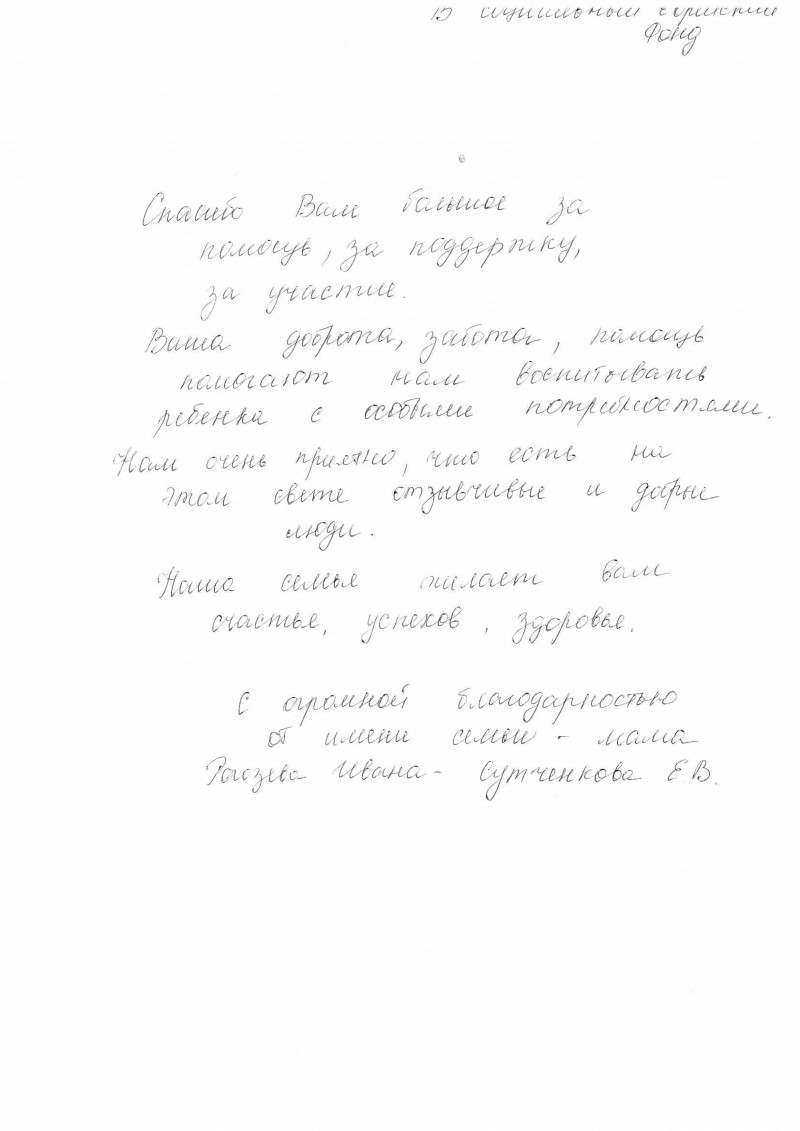 В социальный
Фонд
Спасибо Вам большое за
помощь, за поддержку,
за участие.
Ваша доброта, забота, помощь
помогают нам воспитывать
ребенка с особыми потребностями.
Нам очень приятно, что есть на
этом свете отзывчивые и добрые
люди.
Наша семья желает вам
счастья, успехов, здоровья.
С огромной благодарностью
от имени семьи - мама
Ивана - Сутченкова Е.В.